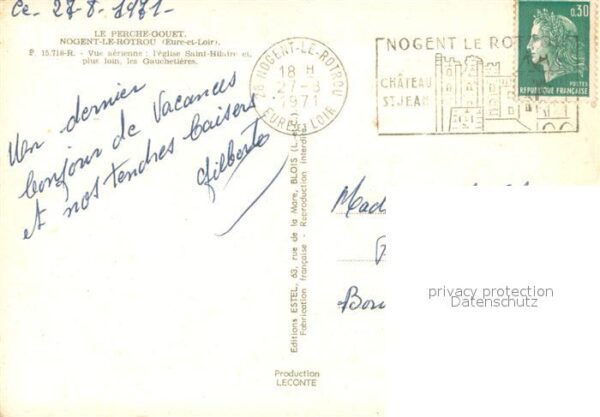 Ce. 27-8-1971-
LE PERCHE-GOUET.
NOGENT-LE-ROTROU (Eure-et-Loir).
P. 15.718-R. - Vue aérienne : l'église Saint-Hilaire et,
plus loin, les Gauchetières.
Un dernier
bonjour de Vacances
et nos tendres baisers
Gilberte
28 NOGENT-LE-ROTROU
18 H
27-8
1971
EURE ET LOIR
NOGENT LE ROTROU
CHÂTEAU
ST JEAN
0,30
POSTES
REPUBLIQUE FRANÇAISE
Editions ESTEL, 63, rue de la Mare, BLOIS (L.-et-C.)
Fabrication française - Reproduction interdite
Production
LECONTE
Mad
Bon
privacy protection
Datenschutz